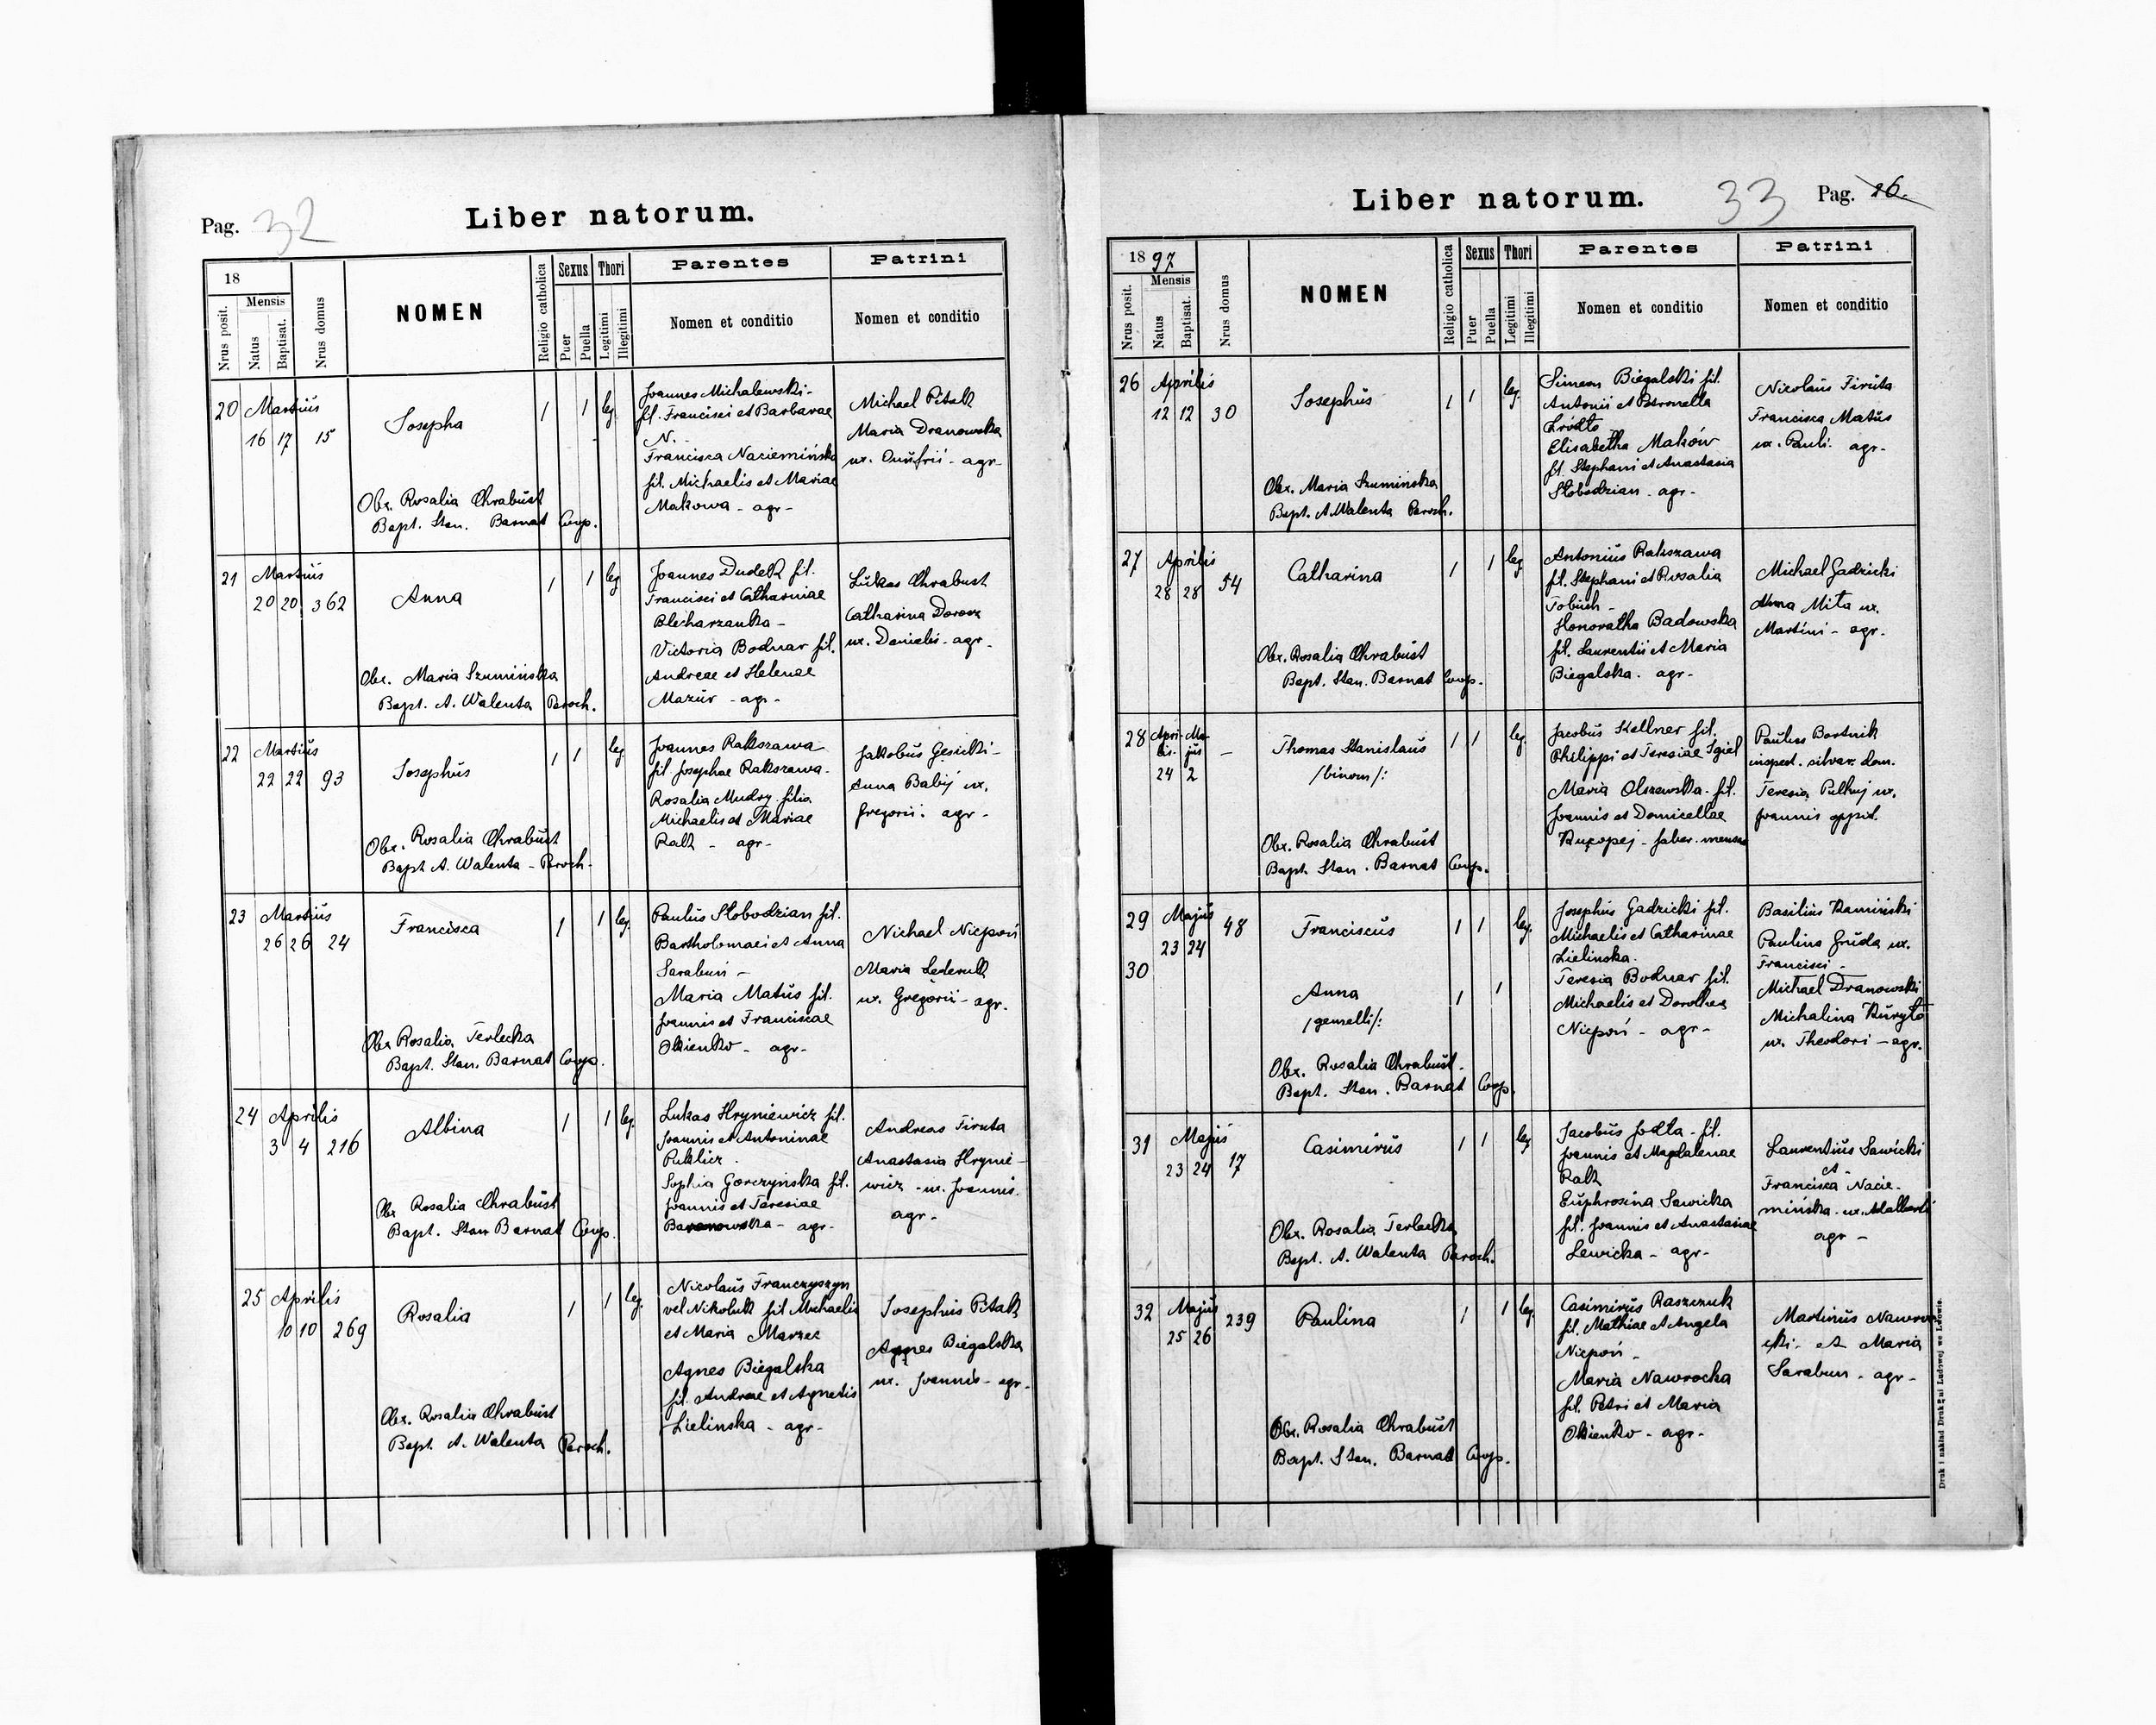 Pag. 32
Liber natorum.
18
Nrus posit.
Mensis
Natus
Baptisat.
Nrus domus
NOMEN
Religio catholica
Sexus
Puer
Puella
Thori
Legitimi
Illegitimi
Parentes
Nomen et conditio
Patrini
Nomen et conditio
20 Martius
16 17 15
Josepha
1 1 leg.
Obx. Rosalia Chrabust
Bapt. Stan. Barnat Coop.
Joannes Michalewski-
fil. Francisci et Barbarae
N. -
Francisca Naciemińska
fil. Michaelis et Mariae
Makowa - agr-
Michael Pitak
Maria Dranowska
ux. Onufrii - agr-
21 Martius
20 20 362
Anna
1 1 leg
Obx. Maria Szumińska
Bapt. A. Walenta Paroch.
Joannes Dudek fil.
Francisci et Catharinae
Blecharzanka -
Victoria Bodnar fil.
Andreae et Helenae
Mazur - agr-
Lukas Chrabust
Catharina Dorosz
ux. Danielis - agr-
22 Martius
22 22 93
Josephus
1 1 leg.
Obx. Rosalia Chrabust
Bapt A. Walenta - Paroch-
Joannes Rakszawa
fil. Josephae Rakszawa-
Rosalia Mudry filia
Michaelis et Mariae
Rak - agr-
Jakobus Gesicki-
Anna Babij ux.
Gregorii: agr-
23 Martius
26 26 24
Francisca
1 1 leg.
Obx Rosalia Terlecka
Bapt. Stan. Barnat Coop.
Paulus Słobodzian fil.
Bartholomaei et Anna
Sarabun -
Maria Matus fil.
Joannis et Franciscae
Okienko - agr-
Michael Niepoń
Maria Lederuk
ux. Gregorii - agr.
24 Aprilis
3 4 216
Albina
1 1 leg.
Obx Rosalia Chrabust
Bapt. Stan Barnat Coop.
Lukas Hryniewicz fil.
Joannis et Antoninae
Puklicz.
Sophia Gorczynska fil.
Joannis et Teresiae
Baranowska - agr-
Andreas Firuta
Anastasia Hrynie-
wicz - ux. Joannis.
agr-
25 Aprilis
10 10 269
Rosalia
1 1 leg.
Obx. Rosalia Chrabust
Bapt. A. Walenta Paroch.
Nicolaus Franczyszyn
vel Nikoluk fil Michaelis
et Maria Marzec
Agnes Biegalska
fil. Andreae et Agnetis
Zielinska - agr-
Josephus Pitak
Agnes Biegalska
ux. Joannis - agr-
Liber natorum.
33 Pag. 26.
1897
Nrus posit.
Mensis
Natus
Baptisat.
Nrus domus
NOMEN
Religio catholica
Sexus
Puer
Puella
Thori
Legitimi
Illegitimi
Parentes
Nomen et conditio
Patrini
Nomen et conditio
26 Aprilis
12 12 30
Josephus
1 1 leg.
Obx. Maria Szumińska
Bapt. A. Walenta Paroch.
Simeon Biegalski fil.
Antonii et Petronella
Źródło
Elisabetha Maków
fil. Stephani et Anastasia
Słobodzian - agr-
Nicolaus Firuta
Francisca Matus
ux. Pauli. agr-
27 Aprilis
28 28 54
Catharina
1 1 leg
Obx. Rosalia Chrabust
Bapt. Stan. Barnat Coop.
Antonius Rakszawa
fil. Stephani et Rosalia
Tobich -
Honoratha Badowska
fil. Laurentii et Maria
Biegalska. agr-
Michael Gadzicki
Anna Mita ux.
Martini - agr-
28 Apri- Ma-
lis- jus
24 2 -
Thomas Stanislaus
/binom/:
1 1 leg.
Obx. Rosalia Chrabust
Bapt. Stan. Barnat Coop.
Jacobus Kellner fil.
Philippi et Teresiae Igiel
Maria Olszewska - fil.
Joannis et Domicellae
Paulus Bortnik
inspect. silvar. dom.
Teresia Pełkij ux.
Joannis oppid.
29 Majus
23 24 48
30
Franciscus
1 1 leg.
Anna
/gemelli/:
1 1
Obx. Rosalia Chrabust.
Bapt. Stan. Barnat Coop.
Josephus Gadzicki fil.
Michaelis et Catharinae
Zielinska.
Teresia Bodnar fil.
Michaelis et Dorothea
Niepoń - agr-
Basilius Kamiński
Paulina Gruda ux.
Francisci -
Michael Dranowski
Michalina Kuryło
ux. Theodori - agr.
31 Majus
23 24 17
Casimirus
1 1 leg
Obx. Rosalia Terlecka
Bapt. A. Walenta Paroch.
Jacobus Jodła - fil.
Joannis et Magdalenae
Rak
Euphrosina Sawicka
fil. Joannis et Anastasiae
Lewicka - agr-
Laurentius Sawicki
et -
Francisca Nacie-
mińska - ux. Adalberti
agr -
32 Majus
25 26 239
Paulina
1 1 leg.
Obx. Rosalia Chrabust
Bapt. Stan. Barnat Coop.
Casimirus Raszczuk
fil. Mathiae et Angela
Niepoń -
Maria Nawrocka
fil. Petri et Maria
Okienko - agr-
Martinus Nawro-
cki - et Maria
Sarabun - agr-
Druk i nakład Drukarni Ludowej we Lwowie.